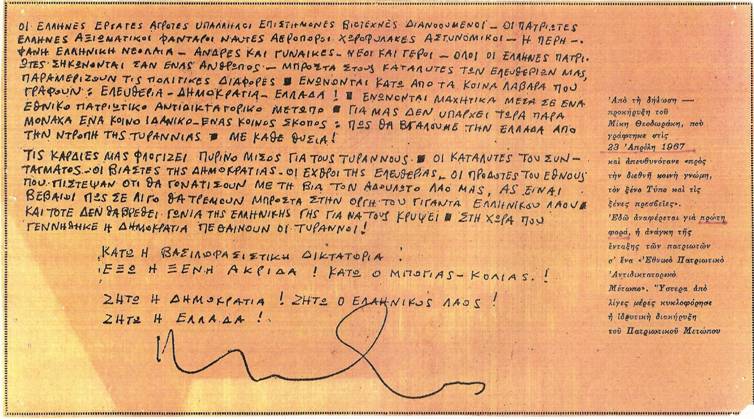 ΟΙ ΕΛΛΗΝΕΣ ΕΡΓΑΤΕΣ ΑΓΡΟΤΕΣ ΥΠΑΛΛΗΛΟΙ ΕΠΙΣΤΗΜΟΝΕΣ ΒΙΟΤΕΧΝΕΣ ΔΙΑΝΟΟΥΜΕΝΟΙ - ΟΙ ΠΑΤΡΙΩΤΕΣ
ΕΛΛΗΝΕΣ ΑΞΙΩΜΑΤΙΚΟΙ ΦΑΝΤΑΡΟΙ ΝΑΥΤΕΣ ΑΕΡΟΠΟΡΟΙ ΧΩΡΟΦΥΛΑΚΕΣ ΑΣΤΥΝΟΜΙΚΟΙ - Η ΠΕΡΗ-
ΦΑΝΗ ΕΛΛΗΝΙΚΗ ΝΕΟΛΑΙΑ - ΑΝΔΡΕΣ ΚΑΙ ΓΥΝΑΙΚΕΣ - ΝΕΟΙ ΚΑΙ ΓΕΡΟΙ - ΟΛΟΙ ΟΙ ΕΛΛΗΝΕΣ ΠΑΤΡΙ-
ΩΤΕΣ ΣΗΚΩΝΟΝΤΑΙ ΣΑΝ ΕΝΑΣ ΑΝΘΡΩΠΟΣ - ΜΠΡΟΣΤΑ ΣΤΟΥΣ ΚΑΤΑΛΥΤΕΣ ΤΩΝ ΕΛΕΥΘΕΡΙΩΝ ΜΑΣ,
ΠΑΡΑΜΕΡΙΖΟΥΝ ΤΙΣ ΠΟΛΙΤΙΚΕΣ ΔΙΑΦΟΡΕΣ ■ ΕΝΩΝΟΝΤΑΙ ΚΑΤΩ ΑΠΟ ΤΑ ΚΟΙΝΑ ΛΑΒΑΡΑ ΠΟΥ
ΓΡΑΦΟΥΝ: ΕΛΕΥΘΕΡΙΑ - ΔΗΜΟΚΡΑΤΙΑ - ΕΛΛΑΔΑ! ■ ΕΝΩΝΟΝΤΑΙ ΜΑΧΗΤΙΚΑ ΜΕΣΑ ΣΕ ΕΝΑ
ΕΘΝΙΚΟ ΠΑΤΡΙΩΤΙΚΟ ΑΝΤΙΔΙΚΤΑΤΟΡΙΚΟ ΜΕΤΩΠΟ ■ ΓΙΑ ΜΑΣ ΔΕΝ ΥΠΑΡΧΕΙ ΤΩΡΑ ΠΑΡΑ
ΜΟΝΑΧΑ ΕΝΑ ΚΟΙΝΟ ΙΔΑΝΙΚΟ - ΕΝΑΣ ΚΟΙΝΟΣ ΣΚΟΠΟΣ: ΠΩΣ ΘΑ ΒΓΑΛΟΥΜΕ ΤΗΝ ΕΛΛΑΔΑ ΑΠΟ
ΤΗΝ ΝΤΡΟΠΗ ΤΗΣ ΤΥΡΑΝΝΙΑΣ ■ ΜΕ ΚΑΘΕ ΘΥΣΙΑ!
ΤΙΣ ΚΑΡΔΙΕΣ ΜΑΣ ΦΛΟΓΙΖΕΙ ΠΥΡΙΝΟ ΜΙΣΟΣ ΓΙΑ ΤΟΥΣ ΤΥΡΑΝΝΟΥΣ ■ ΟΙ ΚΑΤΑΛΥΤΕΣ ΤΟΥ ΣΥΝ-
ΤΑΓΜΑΤΟΣ - ΟΙ ΒΙΑΣΤΕΣ ΤΗΣ ΔΗΜΟΚΡΑΤΙΑΣ - ΟΙ ΕΧΘΡΟΙ ΤΗΣ ΕΛΕΥΘΕΡΙΑΣ, ΟΙ ΠΡΟΔΟΤΕΣ ΤΟΥ ΕΘΝΟΥΣ
ΠΟΥ ΠΙΣΤΕΨΑΝ ΟΤΙ ΘΑ ΓΟΝΑΤΙΣΟΥΝ ΜΕ ΤΗ ΒΙΑ ΤΟΝ ΑΔΟΥΛΩΤΟ ΛΑΟ ΜΑΣ, ΑΣ ΕΙΝΑΙ
ΒΕΒΑΙΟΙ ΠΩΣ ΣΕ ΛΙΓΟ ΘΑ ΤΡΕΜΟΥΝ ΜΠΡΟΣΤΑ ΣΤΗΝ ΟΡΓΗ ΤΟΥ ΓΙΓΑΝΤΑ ΕΛΛΗΝΙΚΟΥ ΛΑΟΥ ■
ΚΑΙ ΤΟΤΕ ΔΕΝ ΘΑ ΒΡΕΘΕΙ ΓΩΝΙΑ ΤΗΣ ΕΛΛΗΝΙΚΗΣ ΓΗΣ ΓΙΑ ΝΑ ΤΟΥΣ ΚΡΥΨΕΙ ■ ΣΤΗ ΧΩΡΑ ΠΟΥ
ΓΕΝΝΗΘΗΚΕ Η ΔΗΜΟΚΡΑΤΙΑ ΠΕΘΑΙΝΟΥΝ ΟΙ ΤΥΡΑΝΝΟΙ!
ΚΑΤΩ Η ΒΑΣΙΛΟΦΑΣΙΣΤΙΚΗ ΔΙΚΤΑΤΟΡΙΑ!
ΕΞΩ Η ΞΕΝΗ ΑΚΡΙΔΑ! ΚΑΤΩ Ο ΜΠΟΓΙΑΣ-ΚΟΛΙΑΣ.!
ΖΗΤΩ Η ΔΗΜΟΚΡΑΤΙΑ! ΖΗΤΩ Ο ΕΛΛΗΝΙΚΟΣ ΛΑΟΣ!
ΖΗΤΩ Η ΕΛΛΑΔΑ!
Ἀπὸ τὴ δήλωση —
προκήρυξη τοῦ
Μίκη Θεοδωράκη, ποὺ
γράφτηκε στὶς
23 Ἀπρίλη 1967
καὶ ἀπευθυνόταν «πρὸς
τὴν διεθνῆ κοινὴ γνώμη,
τὸν ξένο Τύπο καὶ τὶς
ξένες πρεσβεῖες».
Ἐδῶ ἀναφέρεται γιὰ πρώτη
φορά, ἡ ἀνάγκη τῆς
ἔνταξης τῶν πατριωτῶν
σ' ἕνα «Ἐθνικὸ Πατριωτικὸ
Ἀντιδικτατορικὸ
Μέτωπο». Ὕστερα ἀπὸ
λίγες μέρες κυκλοφόρησε
ἡ ἱδρυτικὴ διακήρυξη
τοῦ Πατριωτικοῦ Μετώπου